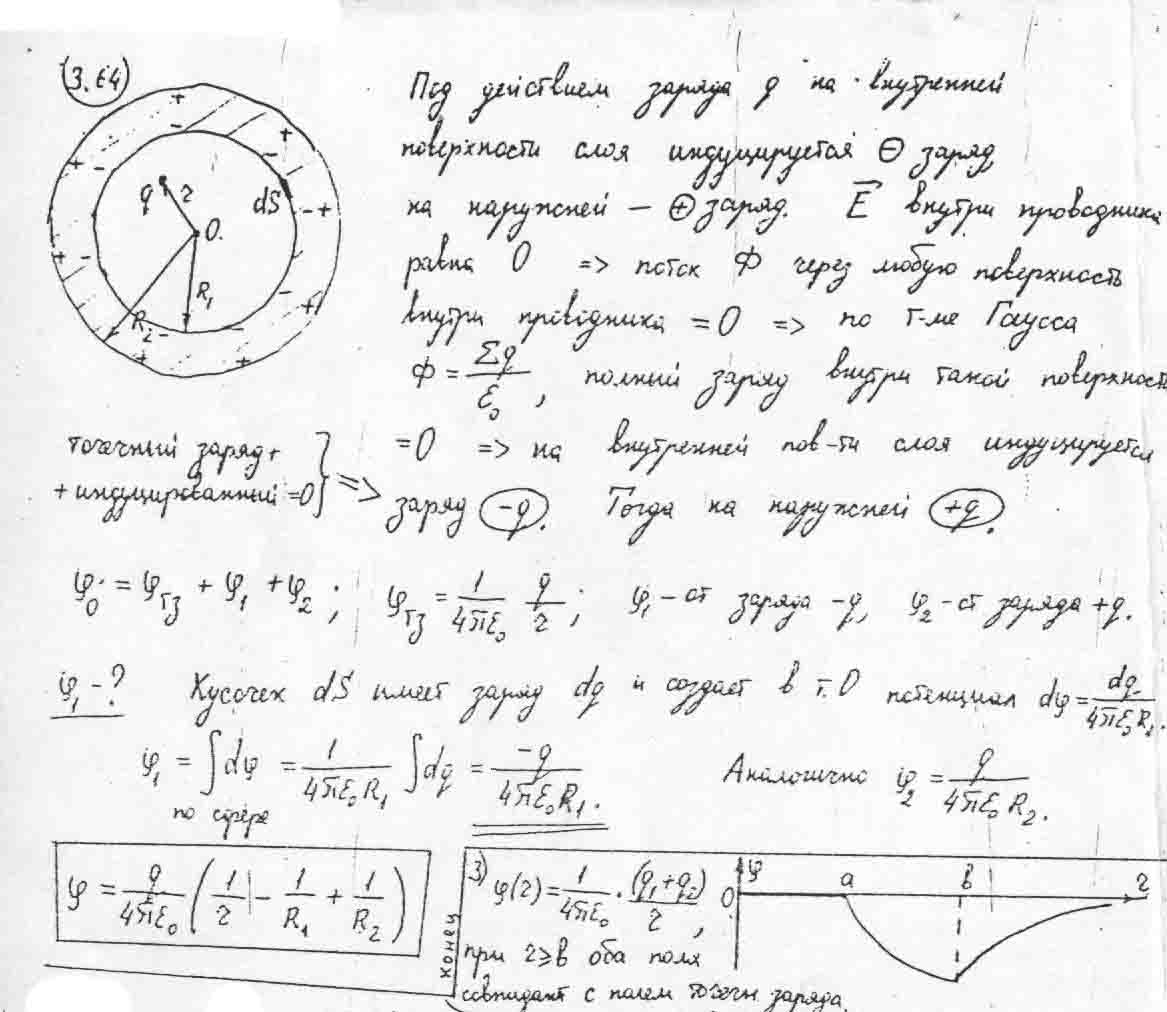 3.64
Под действием заряда q на внутренней
поверхности слоя индуцируется ⊖ заряд,
на наружней – ⊕ заряд. E⃗ внутри проводника
равна 0 => поток Φ через любую поверхность
внутри проводника = 0 => по т-ме Гаусса
Φ = Σq/ε₀, полный заряд внутри такой поверхности
= 0 => на внутренней пов-ти слоя индуцируется
заряд -q. Тогда на наружней +q.
точечный заряд +
+ индуцированный = 0 } =>
q r O dS R₁ R₂
φ₀ = φтз + φ₁ + φ₂; φтз = 1/4πε₀ q/r; φ₁ – от заряда -q, φ₂ – от заряда +q.
φ₁ - ? Кусочек dS имеет заряд dq и создает в т. O потенциал dφ = dq/4πε₀R₁.
φ₁ = ∫dφ = 1/4πε₀R₁ ∫dq = -q/4πε₀R₁. Аналогично φ₂ = q/4πε₀R₂.
по сфере
φ = q/4πε₀ (1/r - 1/R₁ + 1/R₂)
конец
3) φ(r) = 1/4πε₀ · (q₁+q₂)/r,
при r ≥ b оба поля
совпадают с полем точечн. заряда
φ 0 a b r